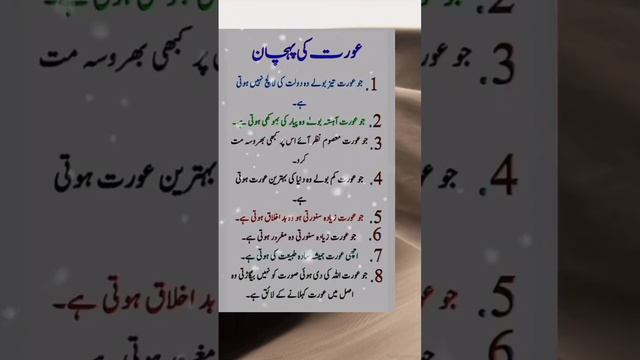 عورت کی پہچان
1. جو عورت تیز بولے وہ دولت کی لالچ نہیں ہوتی
ہے۔
2. جو عورت آہستہ بولے وہ پیار کی بھوکھی ہوتی ہے۔
3. جو عورت معصوم نظر آئے اس پر کبھی بھروسہ مت
کرو۔
4. جو عورت کم بولے وہ دنیا کی بہترین عورت ہوتی
ہے۔
5. جو عورت زیادہ سنورتی ہو وہ بد اخلاق ہوتی ہے۔
6. جو عورت زیادہ سنورتی وہ مغرور ہوتی ہے۔
7. اچھی عورت ہمیشہ سادہ طبیعت کی ہوتی ہے۔
8. جو عورت اللہ کی دی ہوئی صورت کو نہیں بگاڑتی وہ
اصل میں عورت کہلانے کے لائق ہے۔